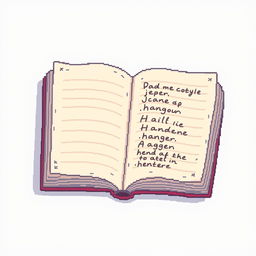 Dad me cotyle
jeper.
Jcane ap
hangoun
Haill iie
Handene
hanger.
A aggen
hend at the
to atel in
hentere